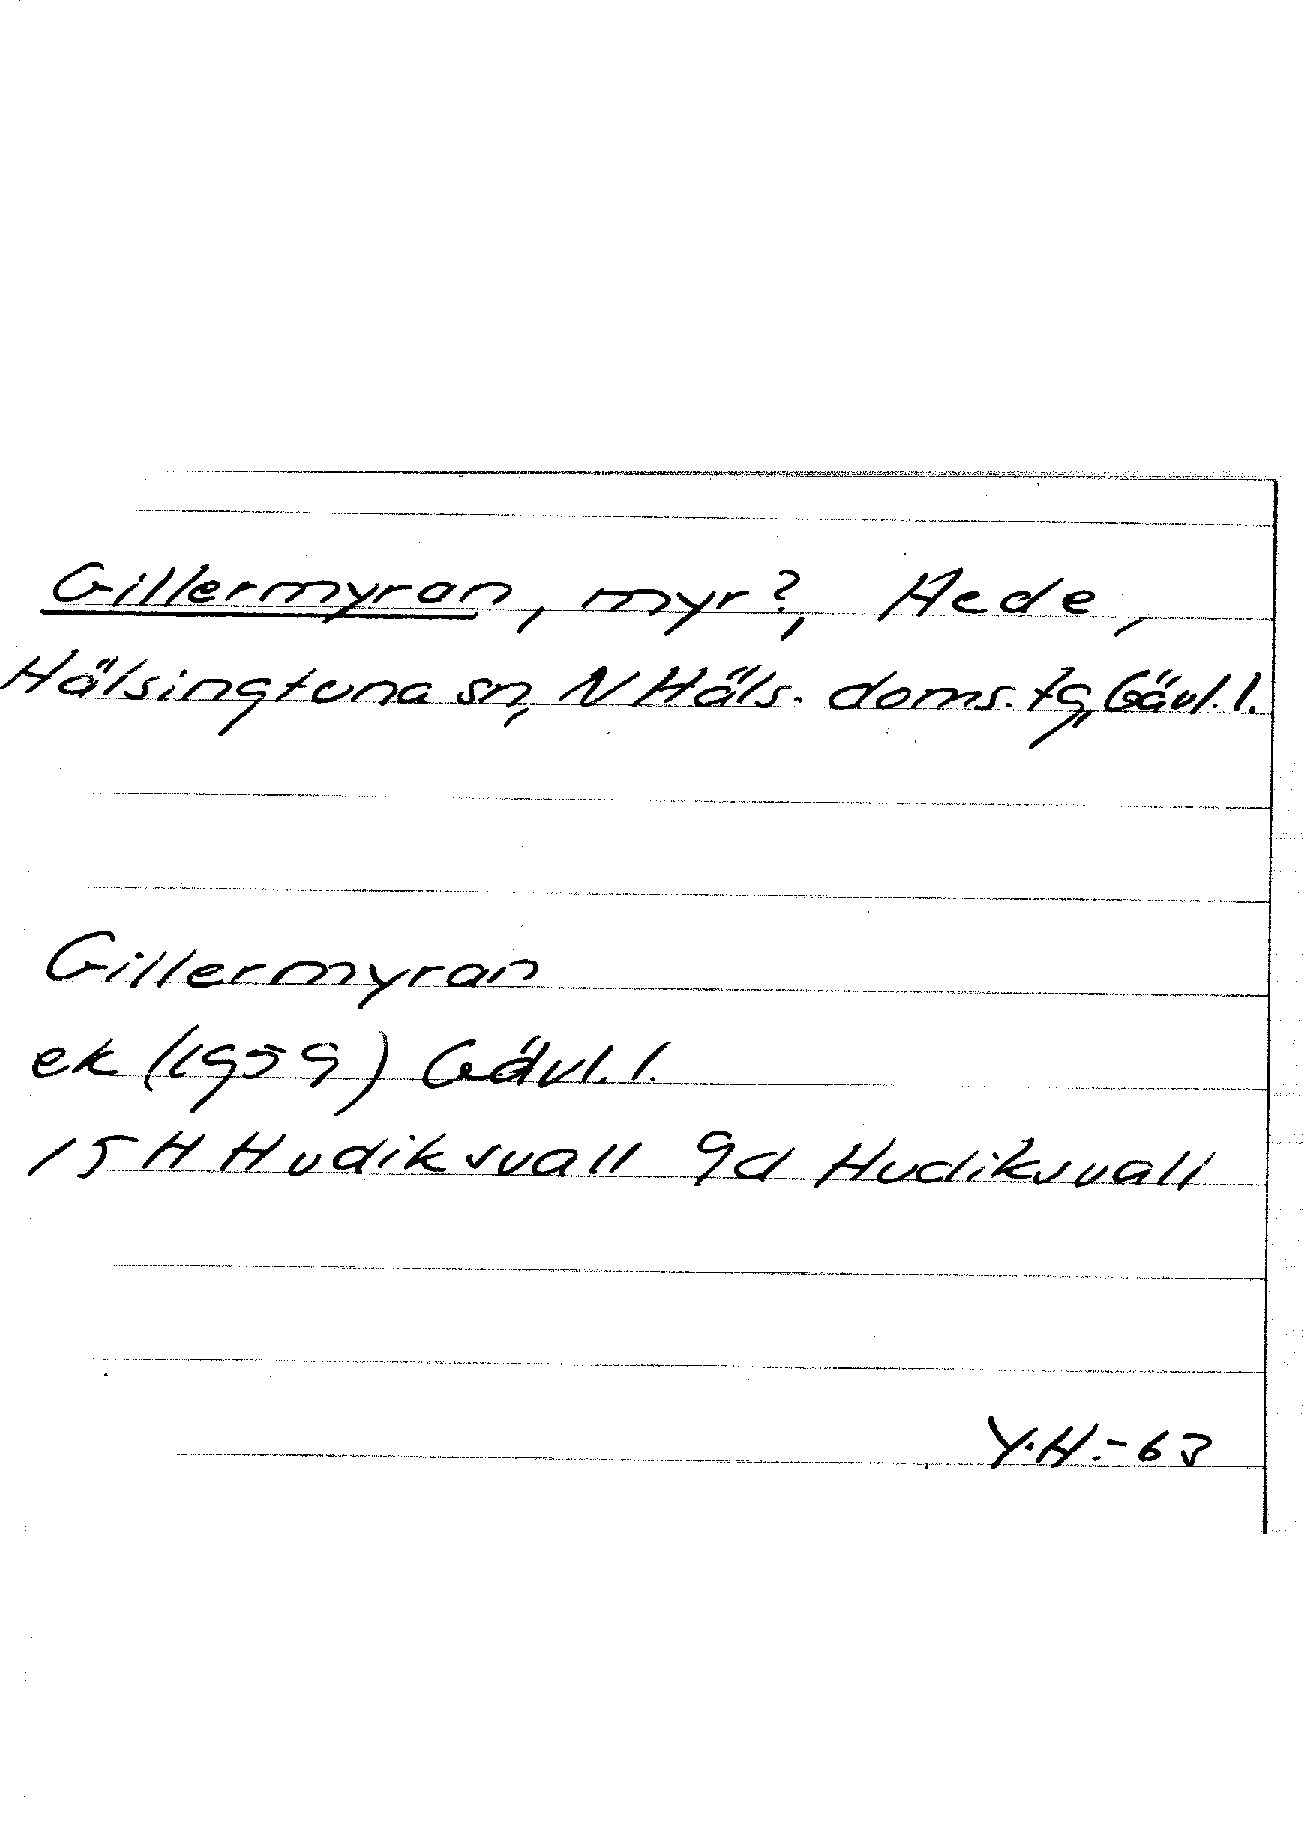 Gillermyran, myr?, Hede,
Hälsingtuna sn, N Häls. doms. tg, Gävl. l.
Gillermyran
ek (1959) Gävl. l.
15 H Hudiksvall 9d Hudiksvall
Y.H.-63